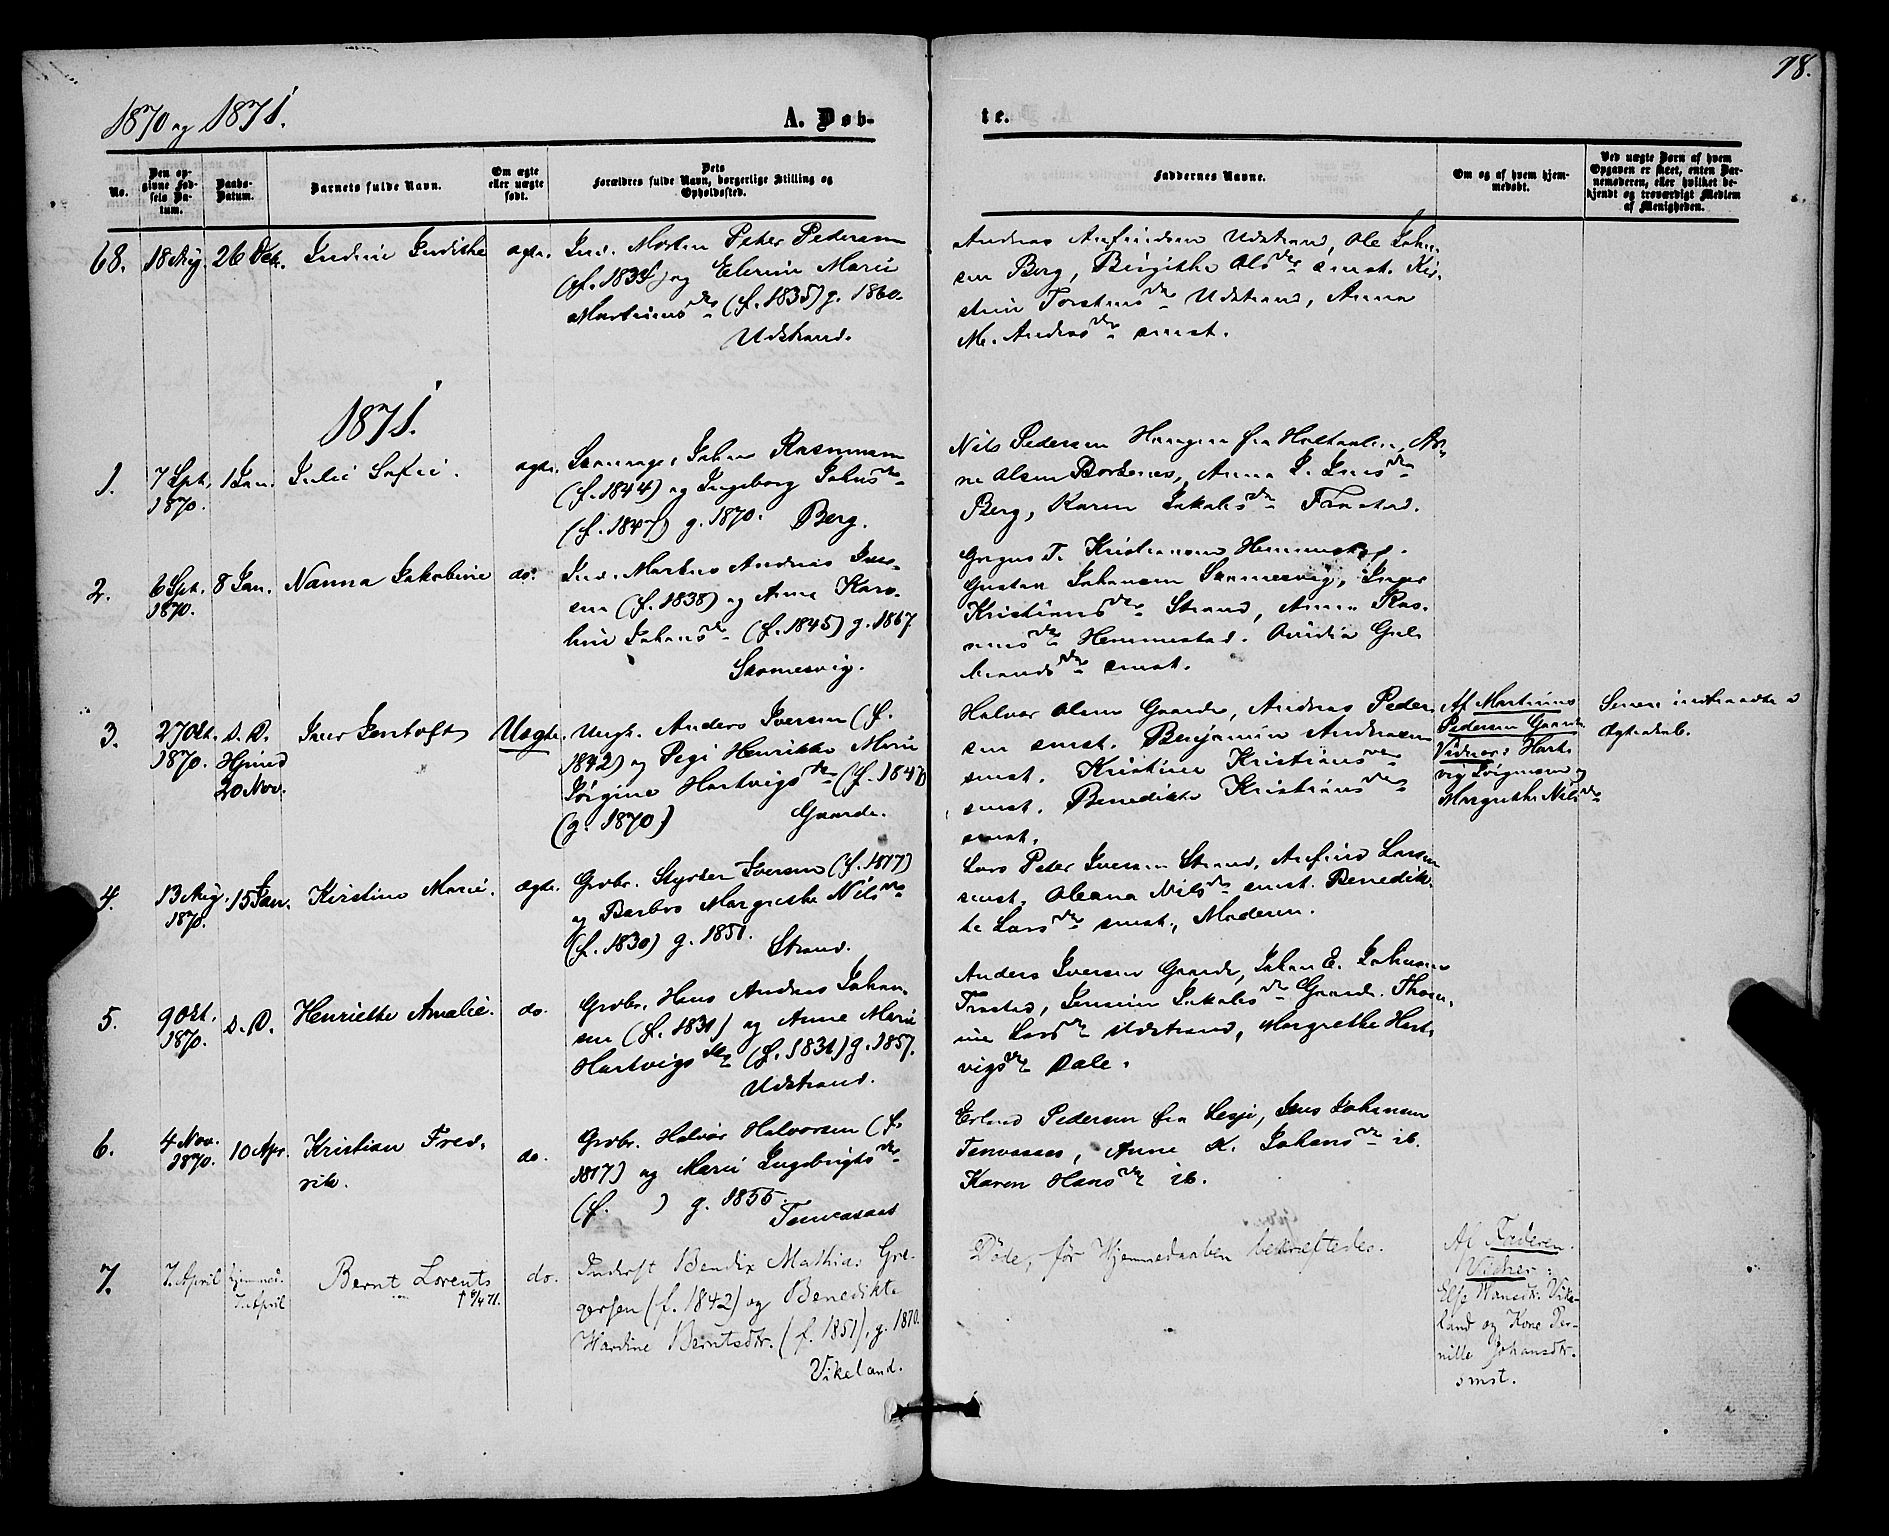 78.
1870 og 1871.
A. Døb-
te.
No.
Den op-
givne Fød-
sels Da-
tum.
Daabs-
Datum.
Barnets fulde Navn.
Om ægte
eller uægte
født.
Dets
Forældres fulde Navn, borgerlige Stilling og
Opholdssted.
Faddernes Navne.
Om og af hvem hjem-
medøbt.
Ved uægte Børn af hvem
Opgaven er skeet, enten Bar-
nemoderen, eller hvilket be-
kjendt og troværdigt Medlem
af Menigheden.
68.
18 Aug.
26 Dec.
ægte.
Ind. Morten Peter Pedersen
(f. 1834) og Elerine Marie
Martinus dtr (f. 1835) g. 1860.
Udstrand.
Andreas Arnfindsen Udstrand, Ole Johan-
sen Berg, Birgitte Ols dtr smst. Kir-
stine Torstens dtr Udstrand, Anna
M. Andreas dtr smst.
1871.
1.
7 Spt.
1870.
1 Jan.
Julie Sofie.
ægte.
Johan Rasmussen
(f. 1844) og Ingeborg Johns dtr
(f. 1847) g. 1870. Berg.
Nils Pedersen Haugen fra Holtaalen, Ar-
ne Olsen Borkenes, Anna J. Jens dtr
Berg, Karen Jakobs dtr Trastad.
2.
6 Spt.
1870.
8 Jan.
Nanna Jakobine
do.
Ind. Markus Andreas Iver-
sen (f. 1838) og Anne Karo-
line Johans dtr (f. 1845) g. 1867
Sommesvig.
T. Kristiansen Hemmestad.
Gustav Johansen Sommesvig, Inger
Kristians dtr Strand, Anna Ras-
mus dtr Hemmestad.
brands dtr smst.
3.
27 Okt.
1870.
s. D.
Hjemd
20 Nov.
Iver Jentoft
Uægte.
Ungk. Anders Iversen (f.
1842) og Pegi Henrikke Marie
Jørgine Hartvigs dtr (f. 1840
(g. 1870) Gaarde.
Halvor Olsen Gaarde, Andreas Peder-
sen smst. Benjamin Andreasen
smst. Kristine Kristians dtr
smst. Benedikte Kristians dtr
smst.
Af Martinus
Pedersen Gaarde
Vidner: Hart-
vig Jørgensen og
Margrethe Nils dtr
Senere indtraadte i
Ægteskab.
4.
13 Aug.
1870.
15 Jan.
Kirstine Marie.
ægte.
Grdbr. Styrker Iversen (f. 1817)
og Barbro Margrethe Nils dtr
(f. 1830) g. 1851.
Strand.
Lars Peter Iversen Strand, Arnfind Larsen
smst. Oleana Nils dtr smst. Benedik-
te Lars dtr smst., Moderen.
5.
9 Okt.
1870.
s. D.
Henriette Amalie.
do.
Grdbr. Hans Andreas Johan-
sen (f. 1831) og Anne Marie
Hartvigs dtr (f. 1831) g. 1857.
Udstrand.
Anders Iversen Gaarde, Johan E. Johnsen
Trastad, Jensine Jakobs dtr Gaarde. Thom-
ine Lars dtr Udstrand, Margrethe Hart-
vigs dtr Dale.
6.
4 Nov.
1870.
10 Apr.
Kristian Fred-
rik.
do.
Grdbr. Halvor Halvorsen (f.
1817) og Marie Ingebrigts dtr
(f. ) g. 1855.
Tenvasaas
Erland Pedersen fra Lesje, Jens Johansen
Tenvasaas, Anne K. Johans dtr ib.
Karen Hans dtr ib.
7.
7. April
hjemmed.
7. April
Bernt Lorents
† 8/4 71.
do.
Inderst Bendix Mathias Gre-
gersen (f. 1842) og Benedikte
Hardine Berntsdtr. (f. 1851), g. 1870.
Vikeland.
Døde, før Hjemmedaaben bekræftedes.
Af Faderen.
Vidner:
Else Hansdtr. Vike-
land og Kone Per-
nille Johansdtr.
smst.